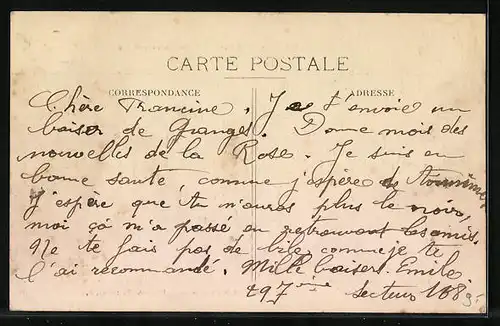 CARTE POSTALE
CORRESPONDANCE ADRESSE
Chère Francine. Je t'envoie un
baiser de Granges. Donne mois des
nouvelles de la Rose. Je suis en
bonne santé, comme j'espère de
J'espère que tu n'auras plus le noir,
moi ça m'a passé en retrouvant les amis.
Ne te fais pas de bile comme je te
l'ai recommandé. Mille baisers. Emile
297ème secteur 168